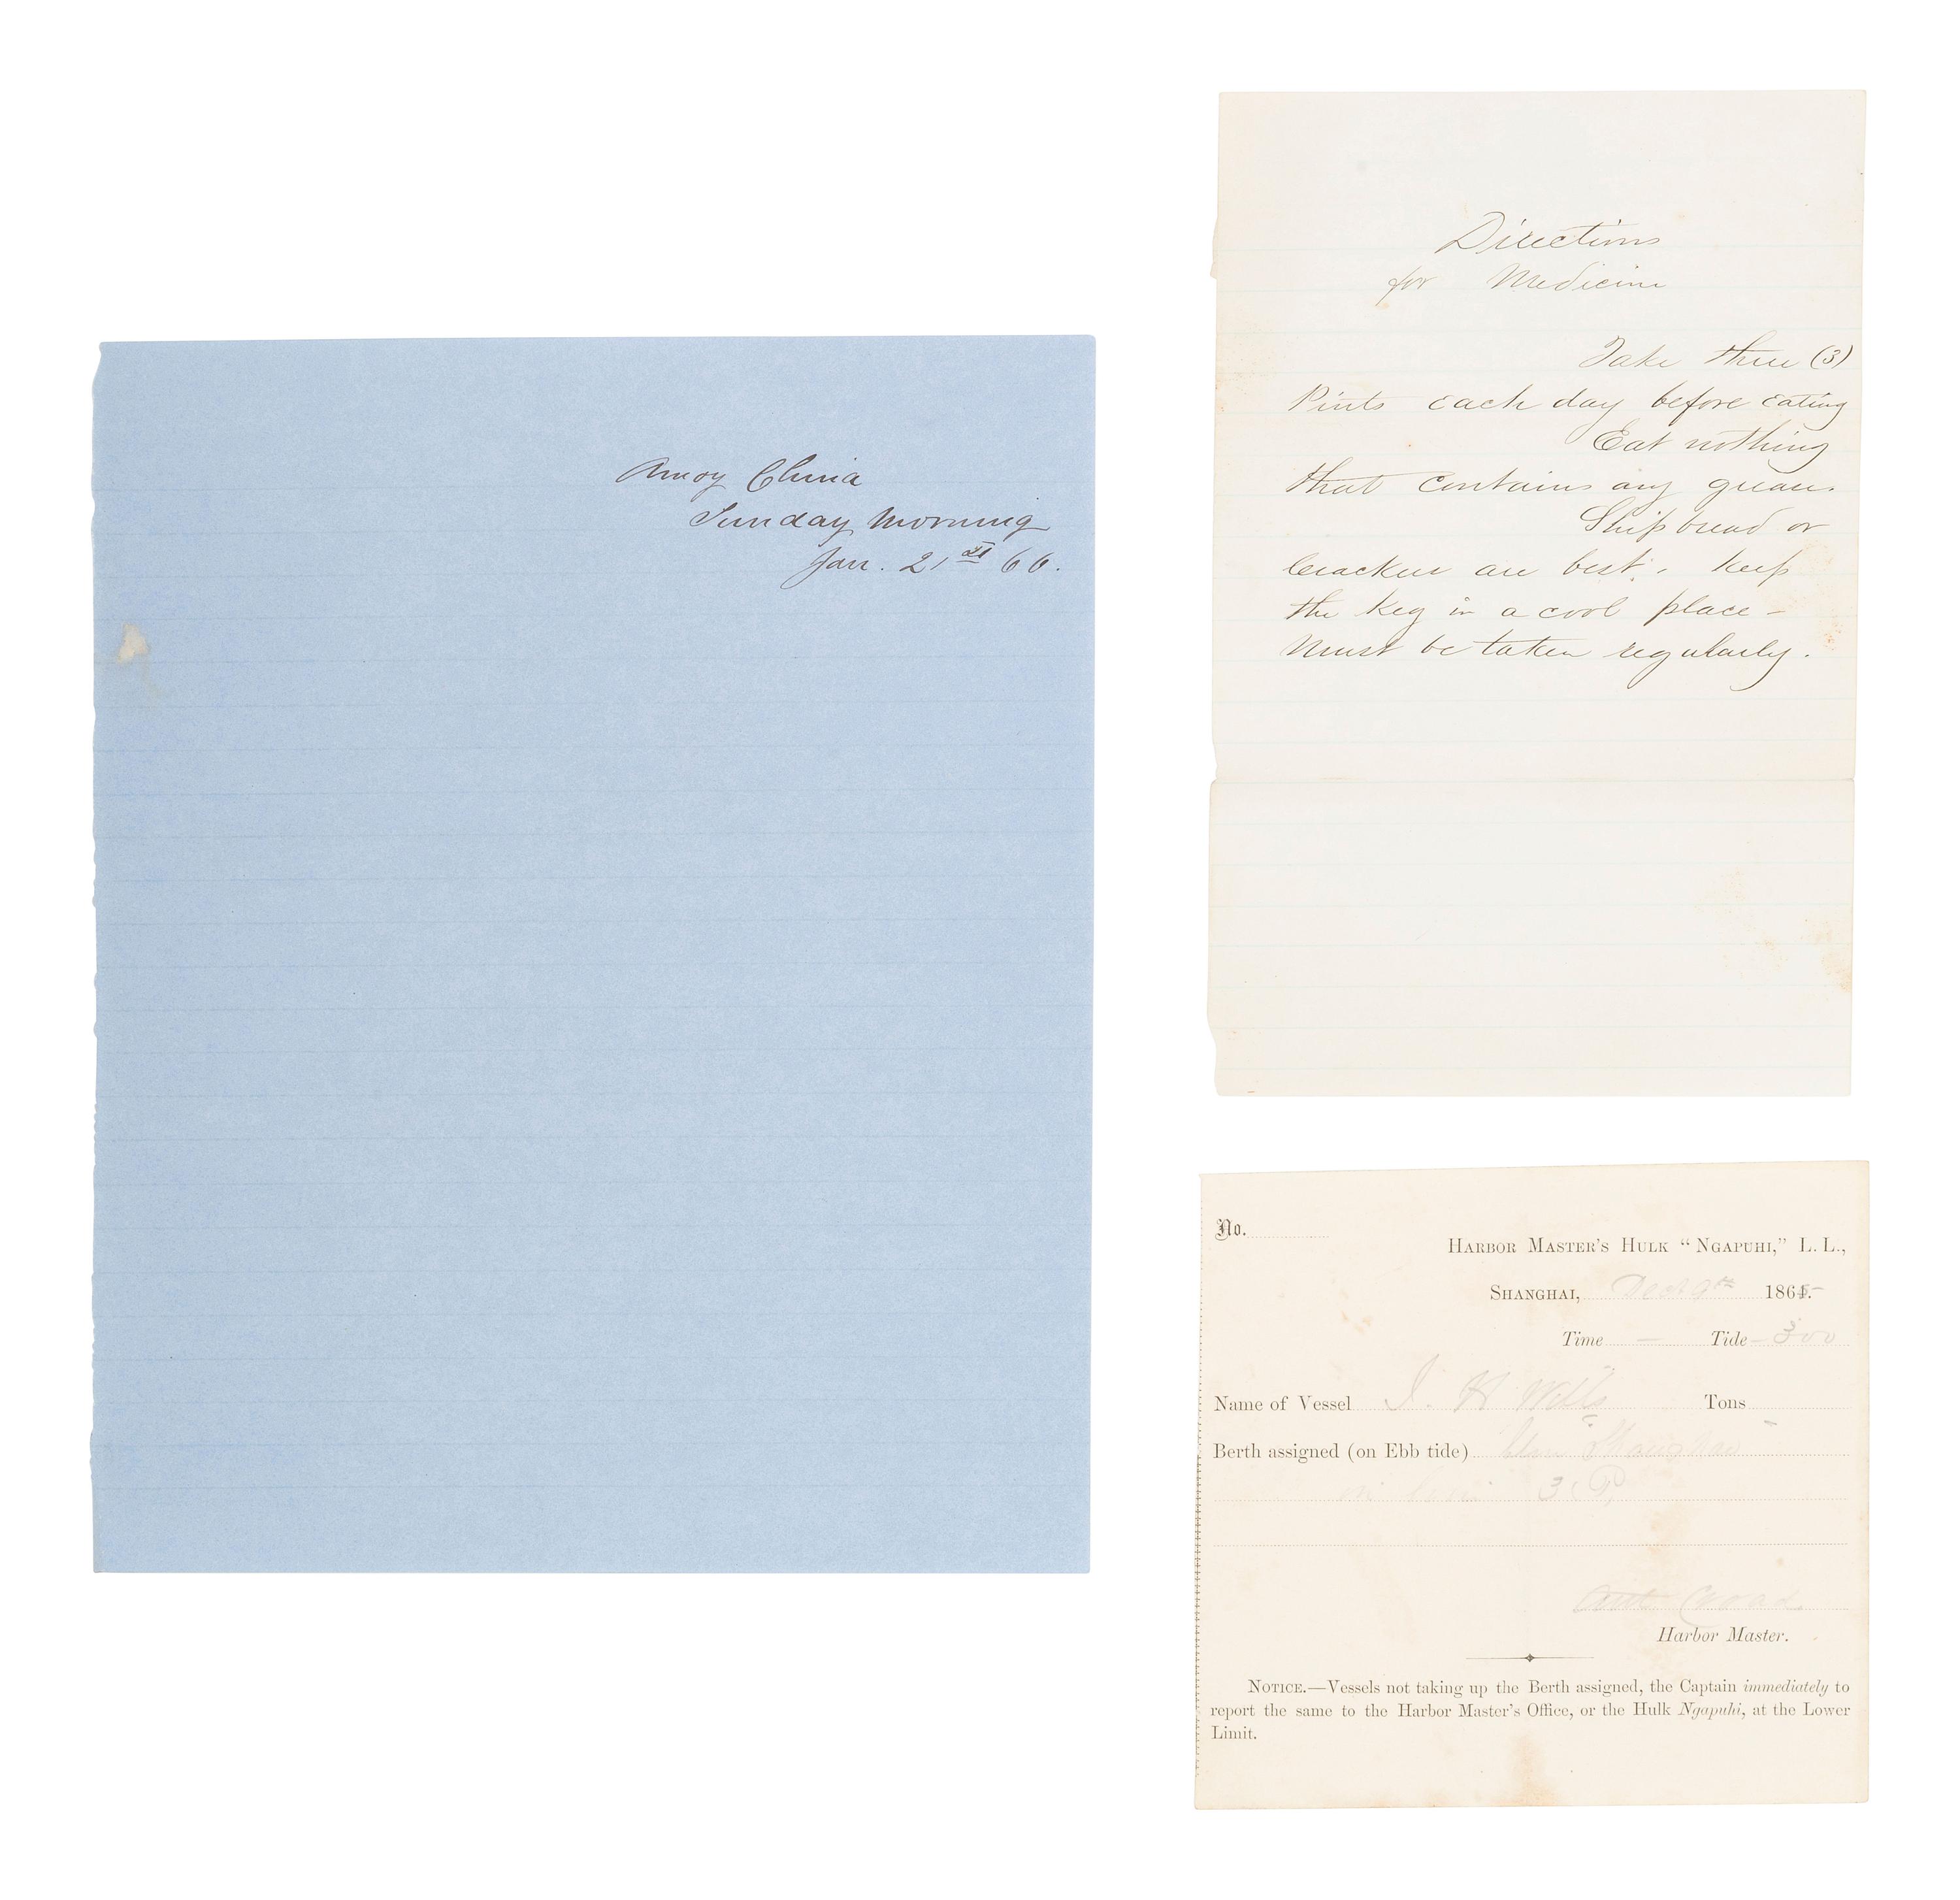 Amoy China
Sunday Morning
Jan. 21st 66.
Directions
for Medicine
Take three (3)
Pints each day before eating
Eat nothing
that contains any grease.
Ship bread or
Crackers are best. keep
the keg in a cool place –
Must be taken regularly.
No.
Harbor Master's Hulk "Ngapuhi," L. L.,
Shanghai, Dec 9th 1865
Time — Tide 300
Name of Vessel J. H Wells Tons
Berth assigned (on Ebb tide)
3
Harbor Master.
Notice.—Vessels not taking up the Berth assigned, the Captain immediately to
report the same to the Harbor Master's Office, or the Hulk Ngapuhi, at the Lower
Limit.